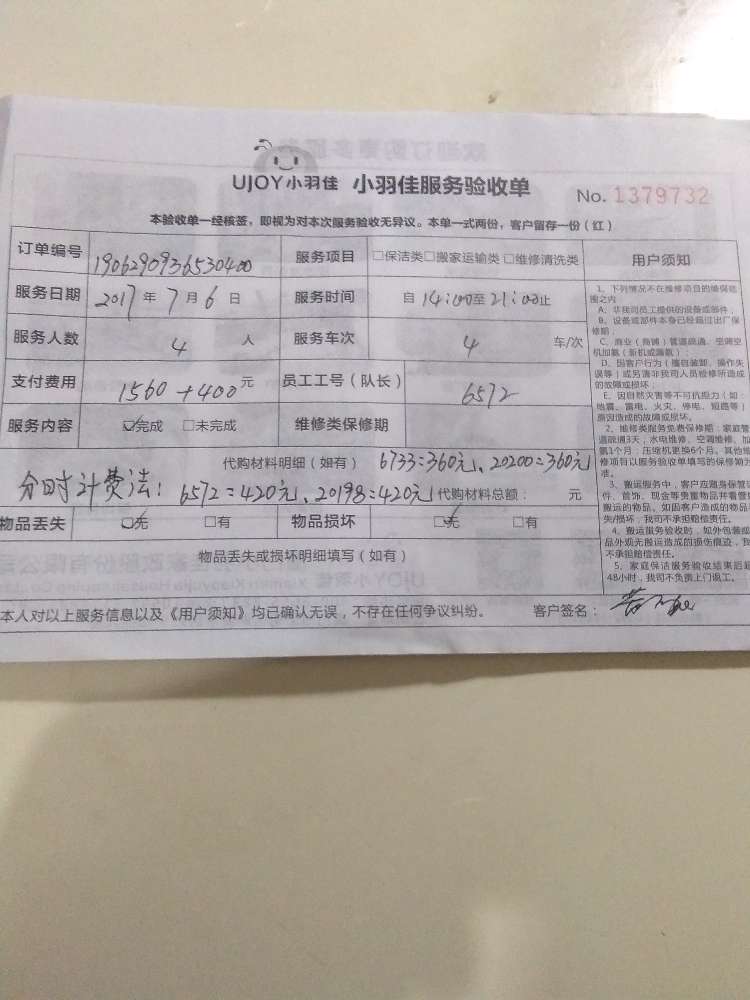 UJOY小羽佳 小羽佳服务验收单 No. 1379732
本验收单一经核签，即视为对本次服务验收无异议。本单一式两份，客户留存一份（红）
订单编号 1906290936530400 服务项目 □保洁类□搬家运输类 □维修清洗类
服务日期 2017年7月6日 服务时间 自 14:00至21:00止
服务人数 4 人 服务车次 4 车/次
支付费用 1560+400元 员工工号（队长） 6572
服务内容 ☑完成 □未完成 维修类保修期
代购材料明细（如有） 6733=360元、20200=360元
分时计费法：6572=420元、20198=420元 代购材料总额： 元
物品丢失 ☑无 □有 物品损坏 ☑无 □有
物品丢失或损坏明细填写（如有）
本人对以上服务信息以及《用户须知》均已确认无误，不存在任何争议纠纷。 客户签名：
用户须知
1、下列情况不在维修项目的维保范
围之内
A、非我司员工提供的设备或部件；
B、设备或部件本身已经超过出厂保
修期；
C、商业（商铺）管道疏通、空调空
机加氨（新机或漏氨）；
D、因客户行为（擅自装卸、操作失
误等）或另请非我司人员检修所造成
的故障或损坏；
E、因自然灾害等不可抗力（如：
地震、雷电、火灾、停电、短路等）
原因造成的故障或损坏。
2、维修类服务免费保修期：家庭管
道疏通3天，水电维修、空调维修、加
氨1个月；压缩机更换6个月。其他维
修项目以服务验收单填写的保修期为
准。
3、搬运服务中，客户应随身保管证
件、首饰、现金等贵重物品并看管被
搬运的物品。如因客户造成的物品损
失/损坏，我司不承担赔偿责任。
4、搬运服务验收时，如外包装或
品外观无搬运造成的损伤痕迹，我
不承担赔偿责任。
5、家庭保洁服务验收结束后超
48小时，我司不负责上门返工。